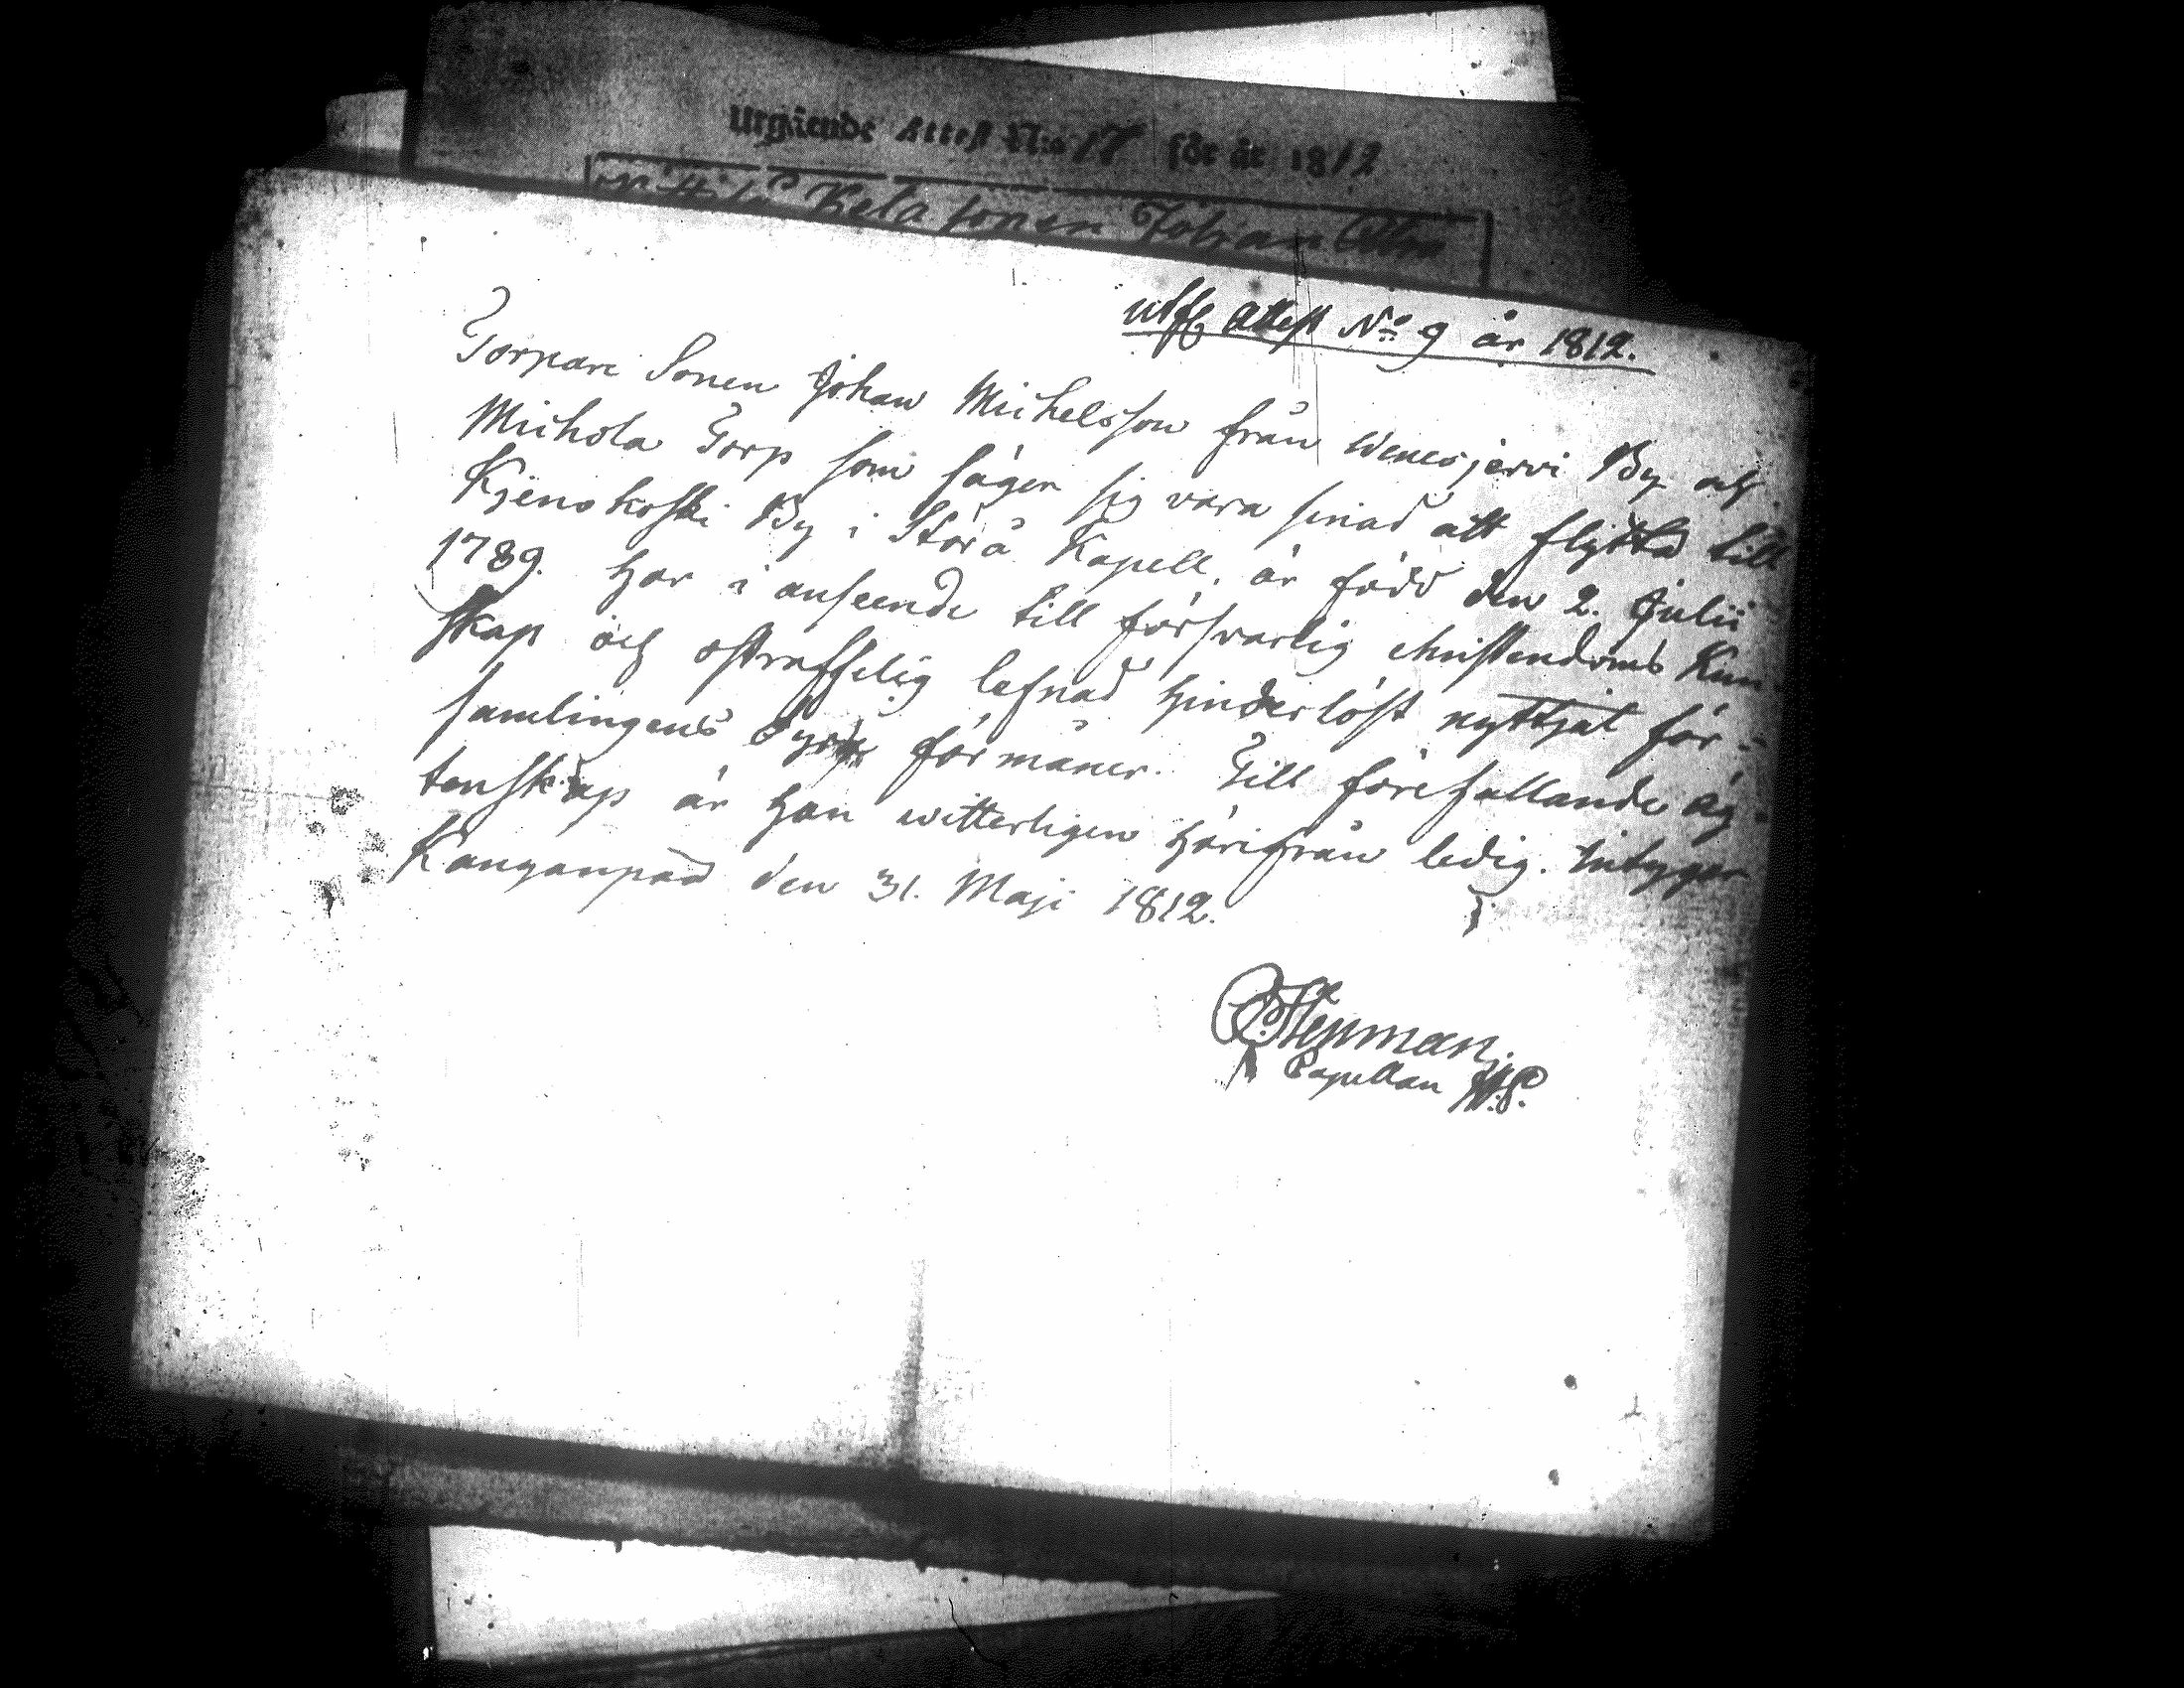 Utgående Attest N:o 17 för år 1812
Kela sonen Johan
utfl attest No 9 år 1812.
Torpare Sonen Johan Michelsson från Wenesjervi By och
Michola Torp som säger sig vara sinad att flytta till
Kjenokoski By i Storå Kapell, är född den 2. Julii
1789. har i anseende till försvarlig christendoms Kun-
skap och ostraffelig lefnad hinderlöst nyttjat för-
samlingens förmåner. Till förefallande äg-
tenskap är han witterligen härifrån ledig. Intygar
Kanganpää den 31. Maji 1812.
Stenman.
Capellan